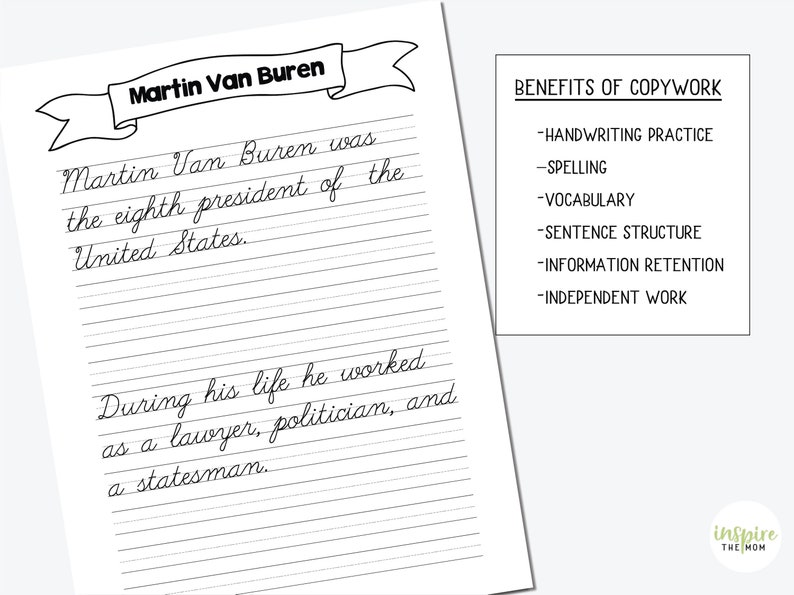 Martin Van Buren
Martin Van Buren was
the eighth president of the
United States.
During his life he worked
as a lawyer, politician, and
a statesman.
BENEFITS OF COPYWORK
-HANDWRITING PRACTICE
-SPELLING
-VOCABULARY
-SENTENCE STRUCTURE
-INFORMATION RETENTION
-INDEPENDENT WORK
inspire
THE MOM